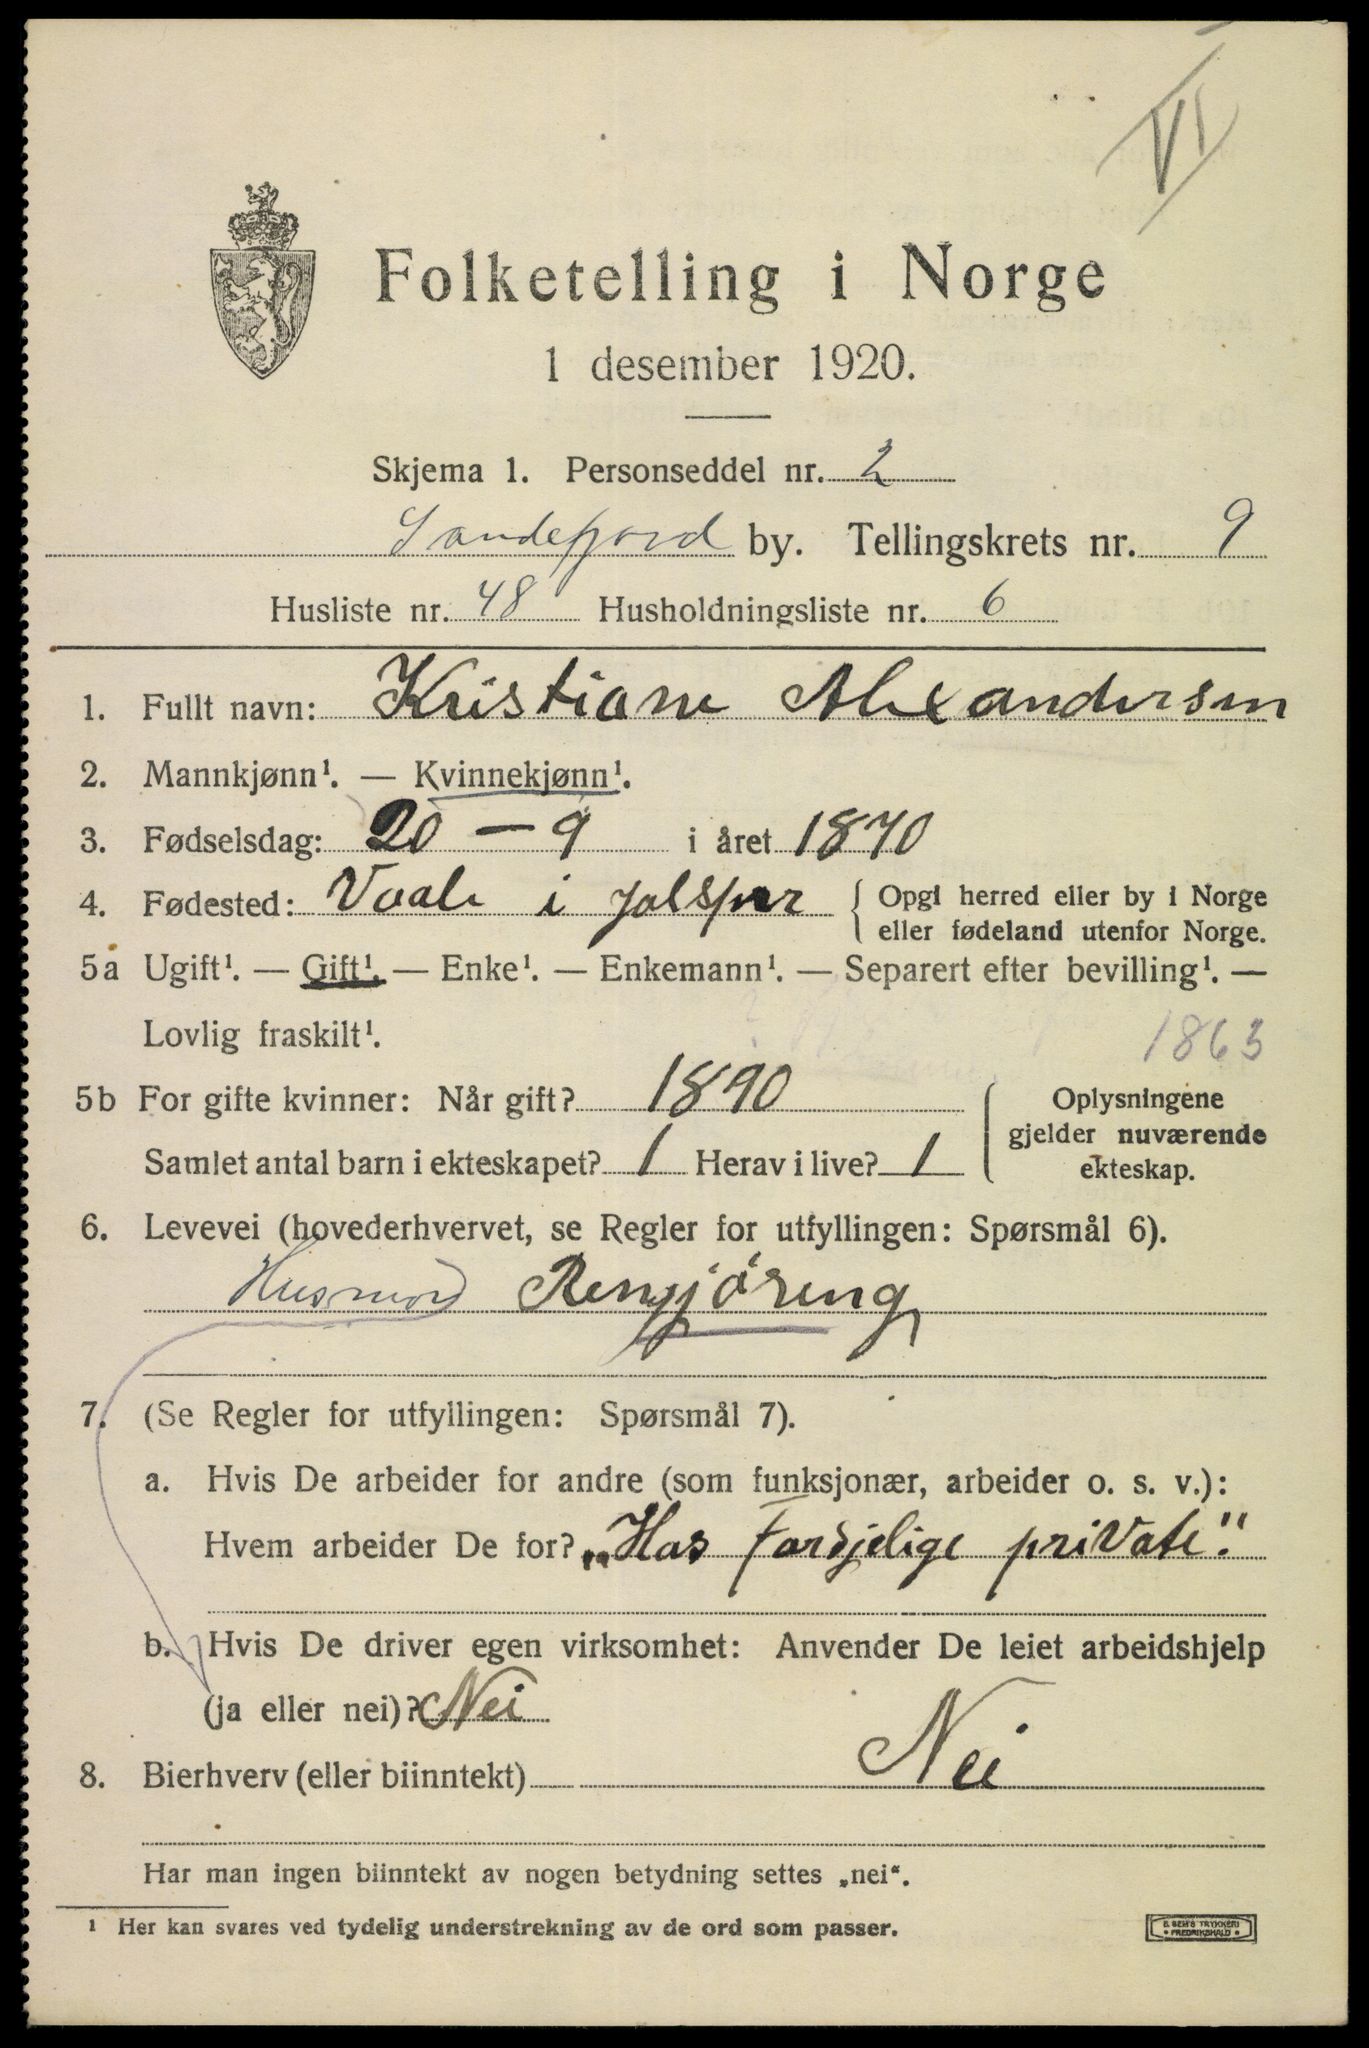 VI
Folketelling i Norge
1 desember 1920.
Skjema 1. Personseddel nr. 2
Sandefjord by. Tellingskrets nr. 9
Husliste nr. 48 Husholdningsliste nr. 6
1. Fullt navn: Kristiane Alexandersen
2. Mannkjønn¹. — Kvinnekjønn¹.
3. Fødselsdag: 20 – 9 i året 1870
4. Fødested: Vaale i { Opgi herred eller by i Norge
eller fødeland utenfor Norge.
5a Ugift¹. — Gift¹. — Enke¹. — Enkemann¹. — Separert efter bevilling¹. —
Lovlig fraskilt¹.
1863
5b For gifte kvinner: Når gift? 1890
Samlet antal barn i ekteskapet? 1 Herav i live? 1
{ Oplysningene
gjelder nuværende
ekteskap.
6. Levevei (hovederhvervet, se Regler for utfyllingen: Spørsmål 6).
Husmor Rengjøring
7. (Se Regler for utfyllingen: Spørsmål 7).
a. Hvis De arbeider for andre (som funksjonær, arbeider o. s. v.):
Hvem arbeider De for? „Hos Forsjelige private."
b. Hvis De driver egen virksomhet: Anvender De leiet arbeidshjelp
(ja eller nei)? Nei
8. Bierhverv (eller biinntekt) Nei
Har man ingen biinntekt av nogen betydning settes „nei“.
¹ Her kan svares ved tydelig understrekning av de ord som passer.
E. SEM'S TRYKKERI
• FREDRIKSHALD •